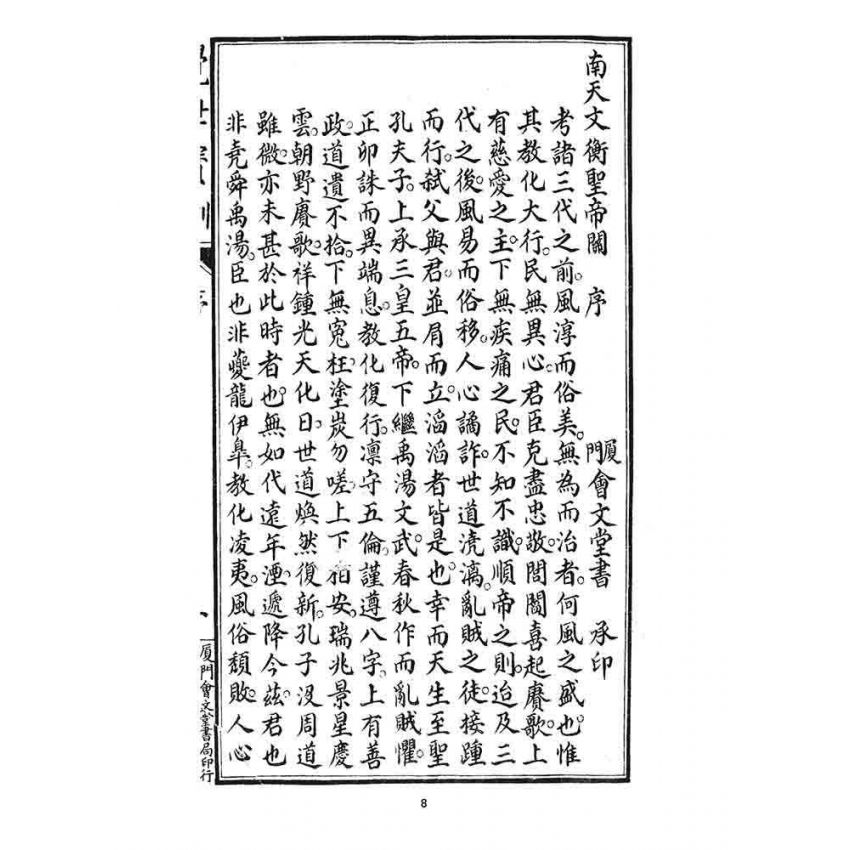 南天文衡聖帝關　序　厦門會文堂書　承印
考諸三代之前。風淳而俗美。無為而治者。何風之盛也。惟
其教化大行。民無異心。君臣克盡忠敬。閭閻喜起賡歌。上
有慈愛之主。下無疾痛之民。不知不識。順帝之則。迨及三
代之後。風易而俗移。人心譎詐。世道澆漓。亂賊之徒。接踵
而行。弑父與君。並肩而立。滔滔者皆是也。幸而天生至聖
孔夫子。上承三皇五帝。下繼禹湯文武。春秋作而亂賊懼。
正卯誅而異端息。教化復行。凛守五倫。謹遵八字。上有善
政。道遺不拾。下無寃枉。塗炭勿嗟。上下相安。瑞兆景星慶
雲。朝野賡歌。祥鍾光天化日。世道煥然復新。孔子沒周道
雖微。亦未甚於此時者也。無如代遠年湮。遞降今茲。君也
非堯舜禹湯。臣也非夔龍伊臯。教化凌夷。風俗頹敗。人心
序
厦門會文堂書局印行
8